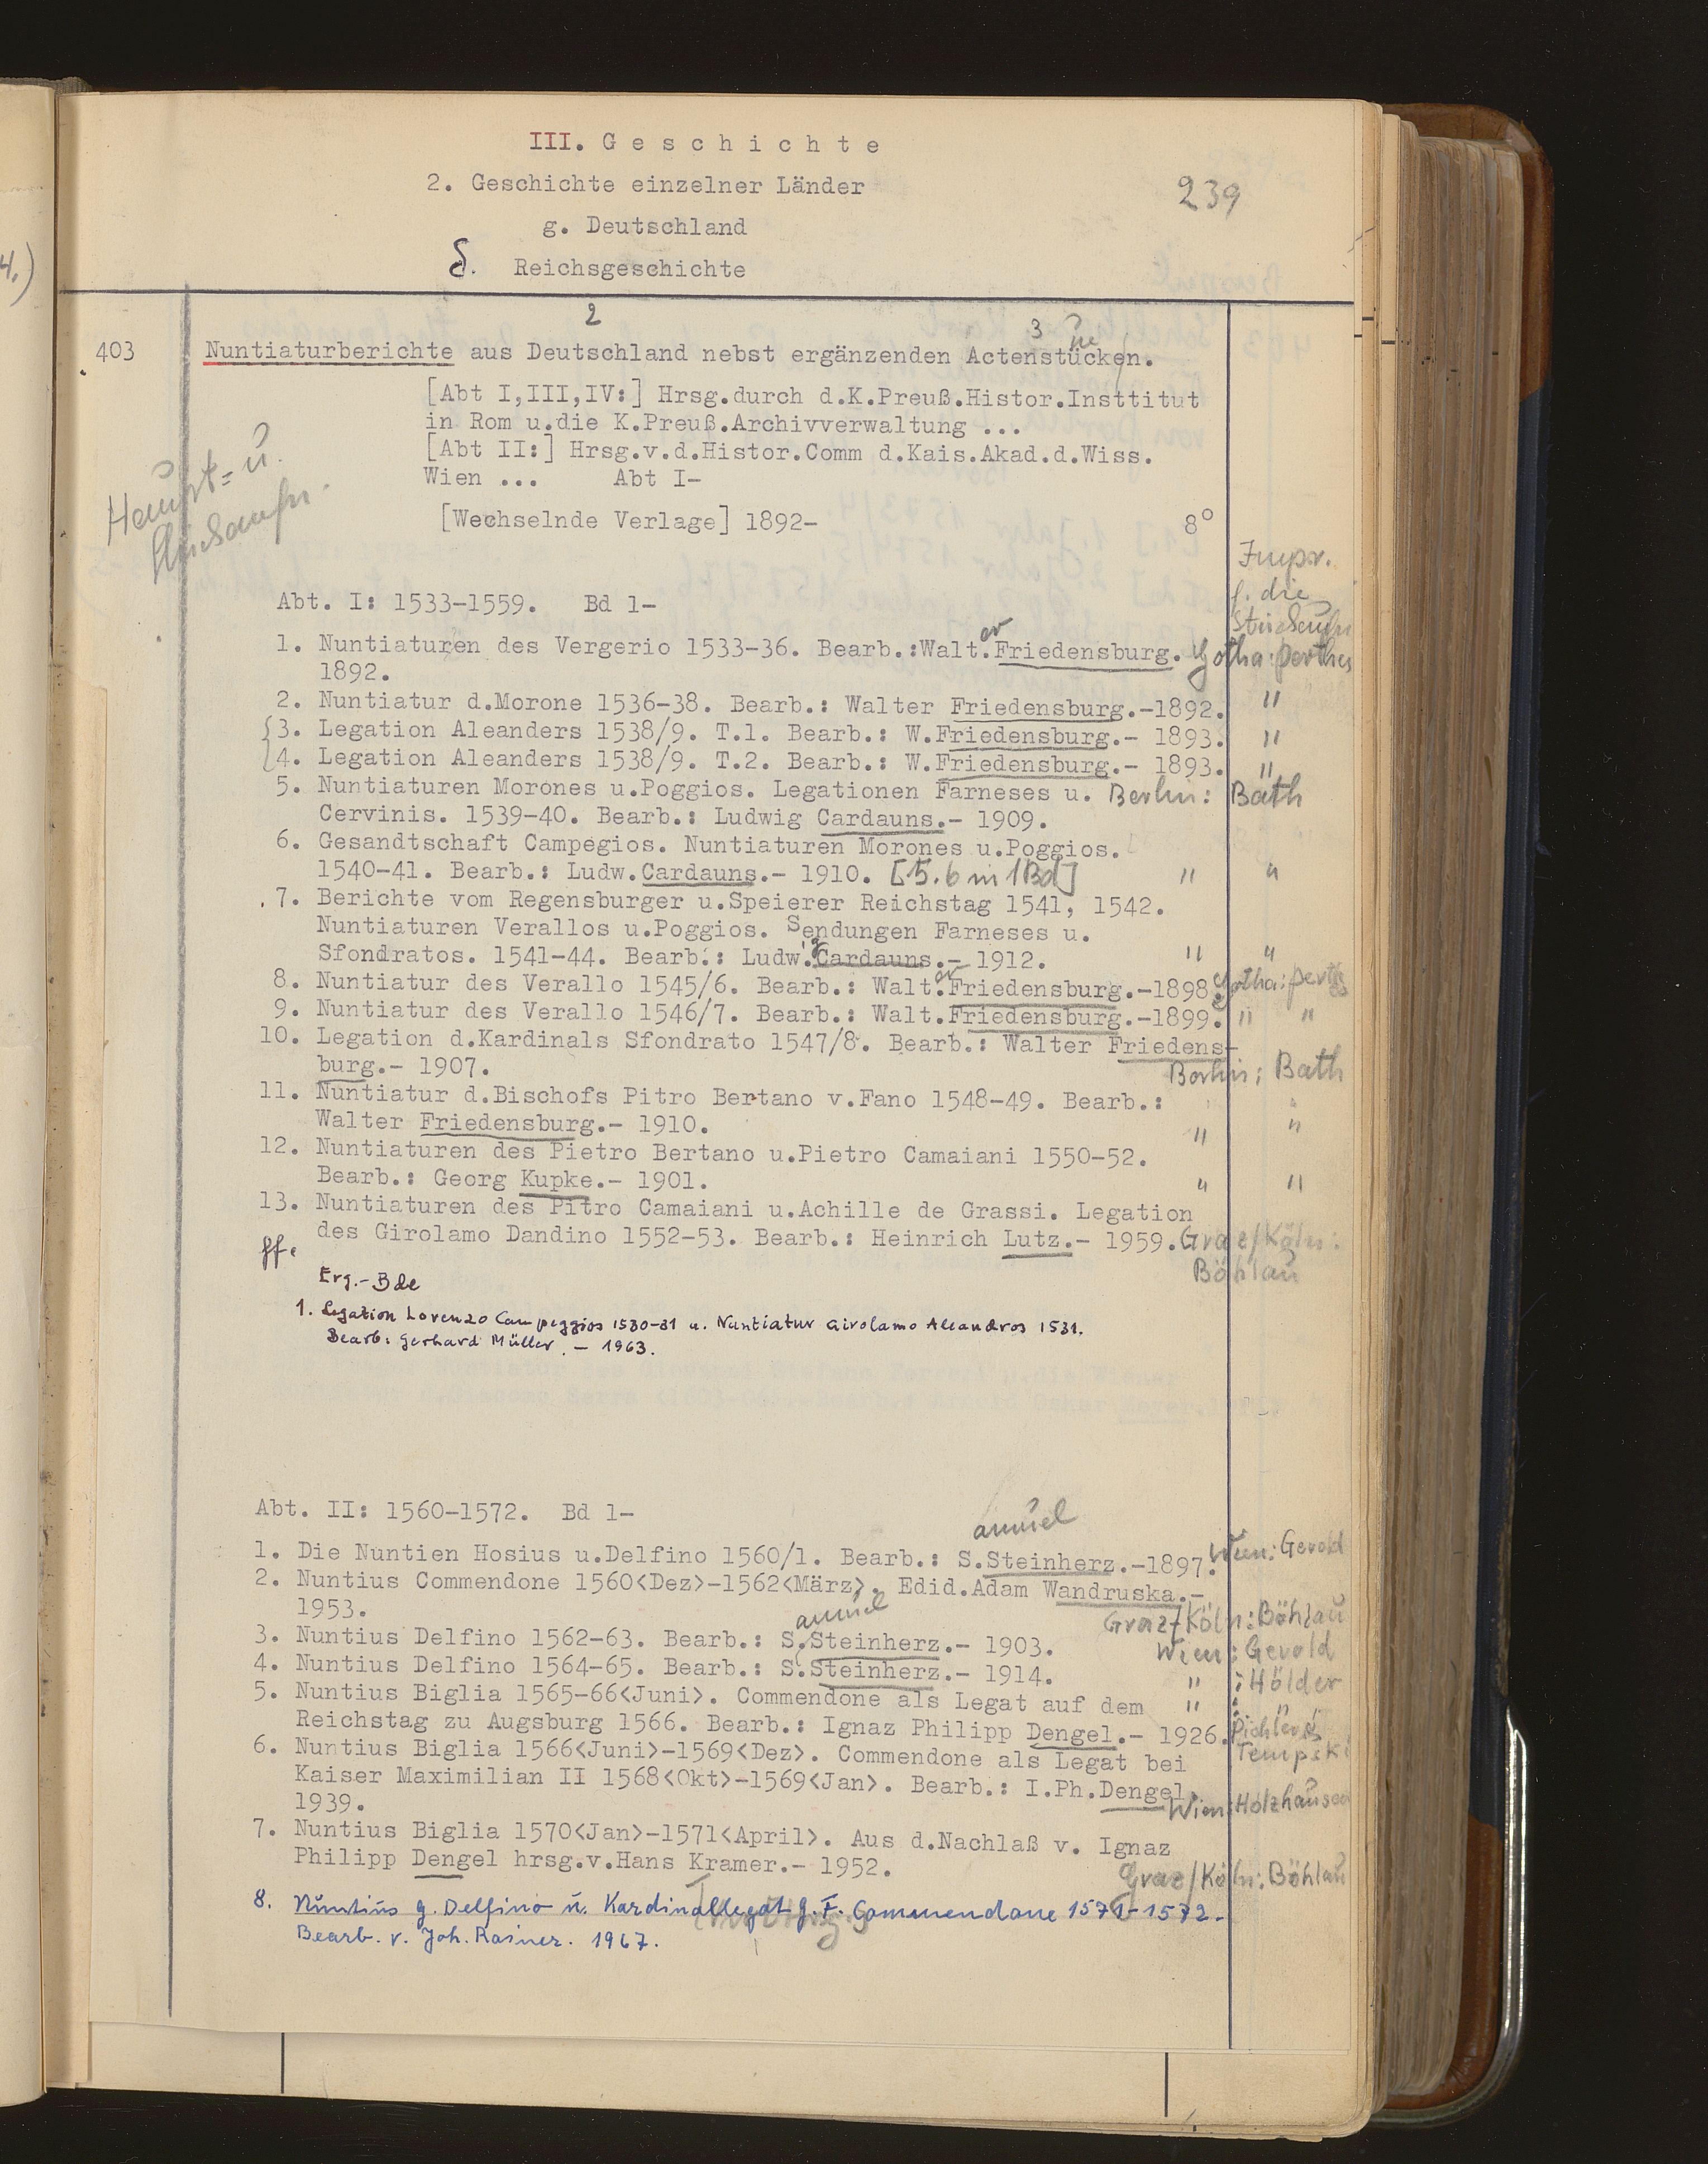 III. G e s c h i c h t e
2. Geschichte einzelner Länder
239
g. Deutschland
δ. Reichsgeschichte
2
3
403
Nuntiaturberichte aus Deutschland nebst ergänzenden Actenstücken.
[Abt I,III,IV:] Hrsg.durch d.K.Preuß.Histor.Insttitut
in Rom u.die K.Preuß.Archivverwaltung ...
[Abt II:] Hrsg.v.d.Histor.Comm d.Kais.Akad.d.Wiss.
Wien ... Abt I-
Haupt= u.
Stückaufn.
[Wechselnde Verlage] 1892- 8°
Impr.
f. die
Stückaufn
Abt. I: 1533-1559. Bd 1-
1. Nuntiaturen des Vergerio 1533-36. Bearb.:Walt.er Friedensburg. Gotha: Perthes
1892.
2. Nuntiatur d.Morone 1536-38. Bearb.: Walter Friedensburg.-1892. "
3. Legation Aleanders 1538/9. T.1. Bearb.: W.Friedensburg.- 1893. "
4. Legation Aleanders 1538/9. T.2. Bearb.: W.Friedensburg.- 1893. "
5. Nuntiaturen Morones u.Poggios. Legationen Farneses u. Berlin: Bath
Cervinis. 1539-40. Bearb.: Ludwig Cardauns.- 1909.
6. Gesandtschaft Campegios. Nuntiaturen Morones u.Poggios.
1540-41. Bearb.: Ludw.Cardauns.- 1910. [5.6 in 1 Bd] " "
7. Berichte vom Regensburger u.Speierer Reichstag 1541, 1542.
Nuntiaturen Verallos u.Poggios. Sendungen Farneses u.
Sfondratos. 1541-44. Bearb.: Ludw.ig Cardauns.- 1912. " "
8. Nuntiatur des Verallo 1545/6. Bearb.: Walt.er Friedensburg.-1898. Gotha: Perthes
9. Nuntiatur des Verallo 1546/7. Bearb.: Walt.Friedensburg.-1899. " "
10. Legation d.Kardinals Sfondrato 1547/8. Bearb.: Walter Friedens-
burg.- 1907. Berlin: Bath
11. Nuntiatur d.Bischofs Pitro Bertano v.Fano 1548-49. Bearb.: " "
Walter Friedensburg.- 1910. " "
12. Nuntiaturen des Pietro Bertano u.Pietro Camaiani 1550-52.
Bearb.: Georg Kupke.- 1901. " "
13. Nuntiaturen des Pitro Camaiani u.Achille de Grassi. Legation
des Girolamo Dandino 1552-53. Bearb.: Heinrich Lutz.- 1959. Graz/Köln:
ff. Böhlau
Erg.-Bde
1. Legation Lorenzo Campeggios 1530-31 u. Nuntiatur Girolamo Aleandros 1531.
Bearb: Gerhard Müller. - 1963.
Abt. II: 1560-1572. Bd 1-
amuel
1. Die Nuntien Hosius u.Delfino 1560/1. Bearb.: S.Steinherz.-1897. Wien: Gerold
2. Nuntius Commendone 1560<Dez>-1562<März>. Edid.Adam Wandruska.-
1953. Graz/Köln: Böhlau
amuel
3. Nuntius Delfino 1562-63. Bearb.: S.Steinherz.- 1903. Wien: Gerold
4. Nuntius Delfino 1564-65. Bearb.: S.Steinherz.- 1914. " : Hölder
5. Nuntius Biglia 1565-66<Juni>. Commendone als Legat auf dem " : "
Reichstag zu Augsburg 1566. Bearb.: Ignaz Philipp Dengel.- 1926. Pichler
Tempski
6. Nuntius Biglia 1566<Juni>-1569<Dez>. Commendone als Legat bei
Kaiser Maximilian II 1568<Okt>-1569<Jan>. Bearb.: I.Ph.Dengel.
1939. Wien: Holzhausen
7. Nuntius Biglia 1570<Jan>-1571<April>. Aus d.Nachlaß v. Ignaz
Philipp Dengel hrsg.v.Hans Kramer.- 1952. Graz/Köln: Böhlau
8. Nuntius G. Delfino u. Kardinallegat G. F. Commendone 1571-1572.
Bearb. v. Joh. Rainer. 1967.